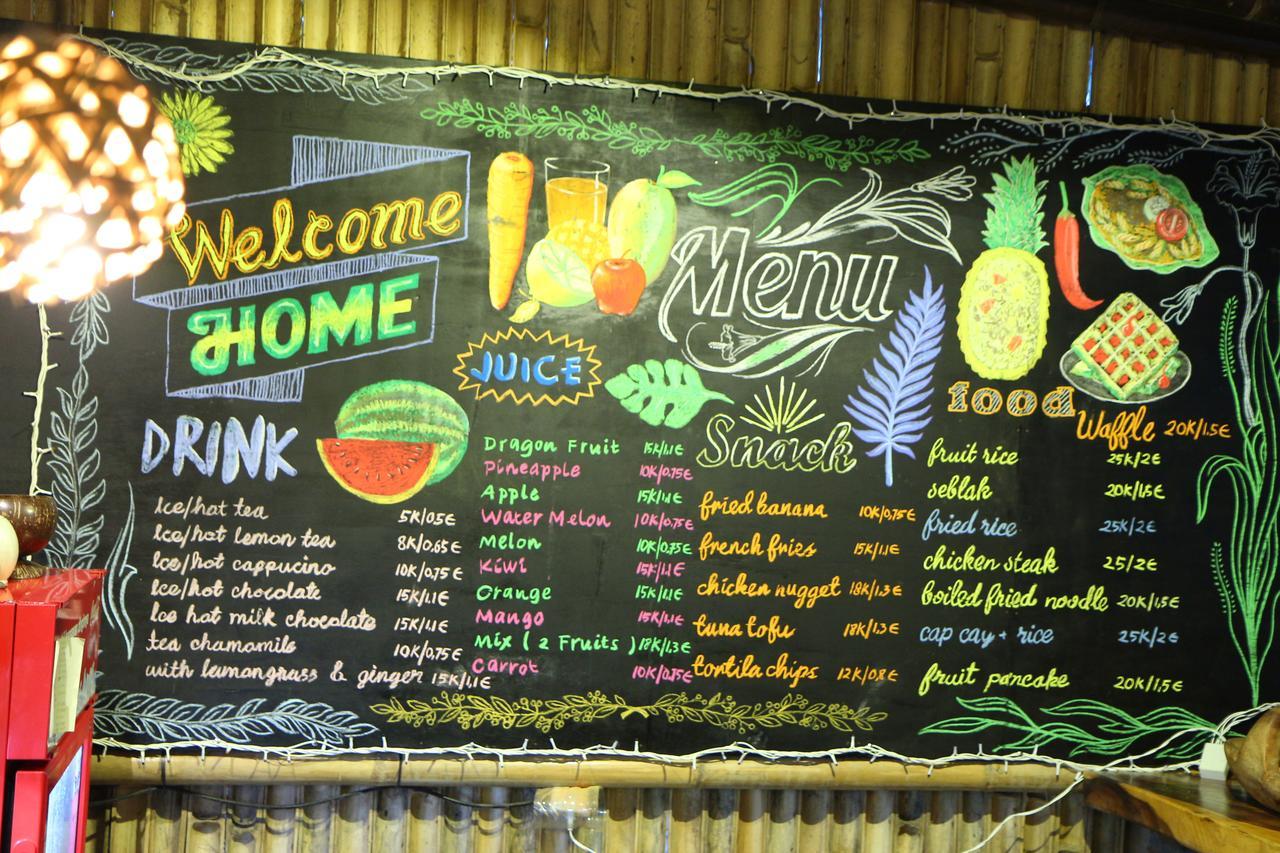 Welcome
HOME
Menu
JUICE
DRINK
Ice/hot tea 5K/0.5€
Ice/hot lemon tea 8K/0.65€
Ice/hot cappucino 10K/0,75€
Ice/hot chocolate 15K/1.1€
Ice hot milk chocolate 15K/1.1€
tea chamomile 10K/0,75€
with lemongrass & ginger 15K/1.1€
Dragon Fruit 15K/1.1€
Pineapple 10K/0.75€
Apple 15K/1.1€
Water Melon 10K/0.75€
Melon 10K/0.75€
Kiwi 15K/1.1€
Orange 15K/1.1€
Mango 15K/1.1€
Mix ( 2 Fruits ) 18K/1.3€
Carrot 10K/0.75€
Snack
fried banana 10K/0,75€
french fries 15K/1.1€
chicken nugget 18K/1.3€
tuna tofu 18K/1,3€
tortila chips 12K/0.8€
food
Waffle 20K/1.5€
fruit rice 25K/2€
seblak 20K/1,5€
fried rice 25K/2€
chicken steak 25/2€
boiled fried noodle 20K/1,5€
cap cay + rice 25K/2€
fruit pancake 20K/1,5€